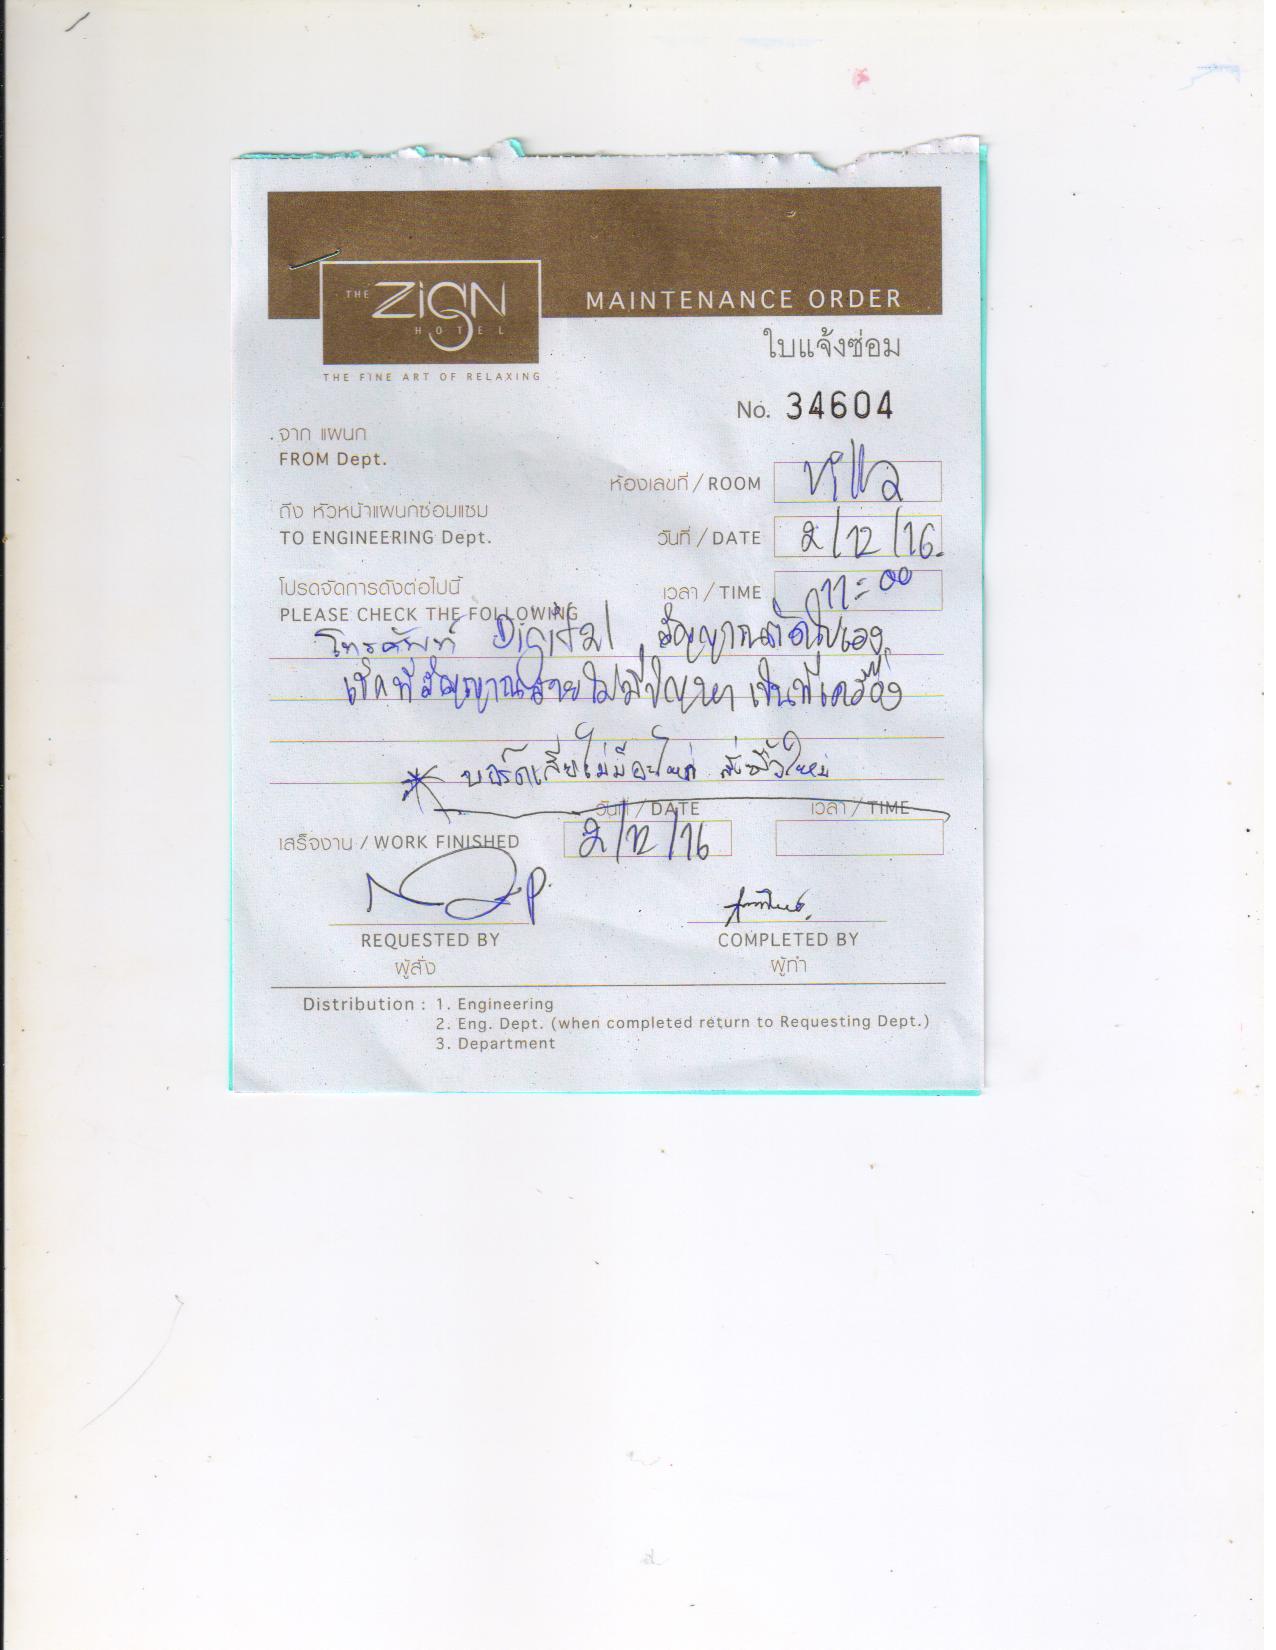 THE ZIGN
HOTEL
THE FINE ART OF RELAXING
MAINTENANCE ORDER
ใบแจ้งซ่อม
No. 34604
จาก แผนก
FROM Dept.
ห้องเลขที่ / ROOM Villa
ถึง หัวหน้าแผนกซ่อมแซม
TO ENGINEERING Dept.
วันที่ / DATE 2/12/16.
โปรดจัดการดังต่อไปนี้
PLEASE CHECK THE FOLLOWING
เวลา / TIME 11:00
โทรศัพท์ Digital สัญญาณตัดไปเอง
เช็คที่สัญญาณสายไม่มีปัญหา เป็นที่เครื่อง
* บอร์ดเสียไม่มีอะไหล่ สั่งซื้อใหม่
วันที่ / DATE เวลา / TIME
เสร็จงาน / WORK FINISHED 2/12/16
REQUESTED BY COMPLETED BY
ผู้สั่ง ผู้ทำ
Distribution : 1. Engineering
2. Eng. Dept. (when completed return to Requesting Dept.)
3. Department